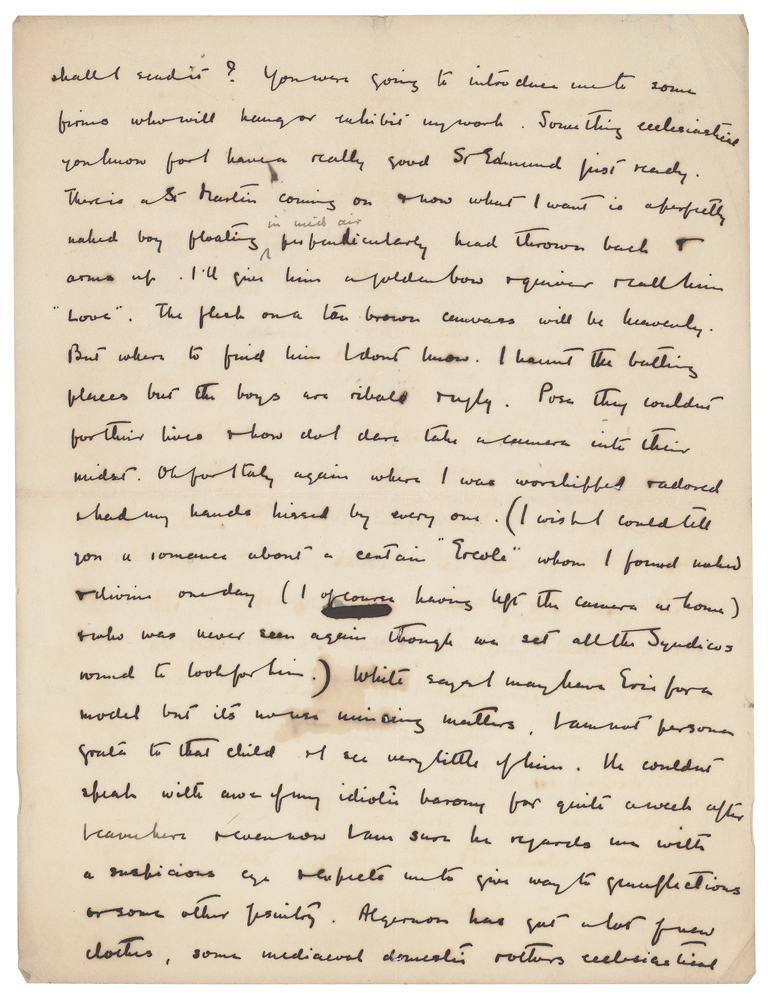 shall I send it? You were going to introduce me to some
firms who will hang or exhibit my work. Something ecclesiastical
you know for I have a really good St Edmund just ready.
There is a St Martin coming on & now what I want is a perfectly
in mid air
naked boy floating ^ perpendicularly head thrown back &
arms up. I'll give him a golden bow & quiver & call him
"Love". The flesh on a tan brown canvass will be heavenly.
But where to find him I dont know. I haunt the bathing
places but the boys are ribald & ugly. Pose they couldnt
for their lives & how do I dare take a camera into their
midst. Oh for Italy again where I was worshipped & adored
& had my hands kissed by every one. (I wish I could tell
you a romance about a certain "Ercole" whom I found naked
& divine one day (I of course having left the camera at home)
& who was never seen again though we set all the Syndicos
round to look for him.) White says I may have Eric for a
model but its no use mincing matters, I am not persona
grata to that child & I see very little of him. He couldnt
speak with awe of my idiotic barony for quite a week after
I came here & even now I am sure he regards me with
a suspicious eye & expects me to give way to genuflections
or some other fruitry. Algernon has got a lot of new
clothes, some mediaeval domestic & others ecclesiastical